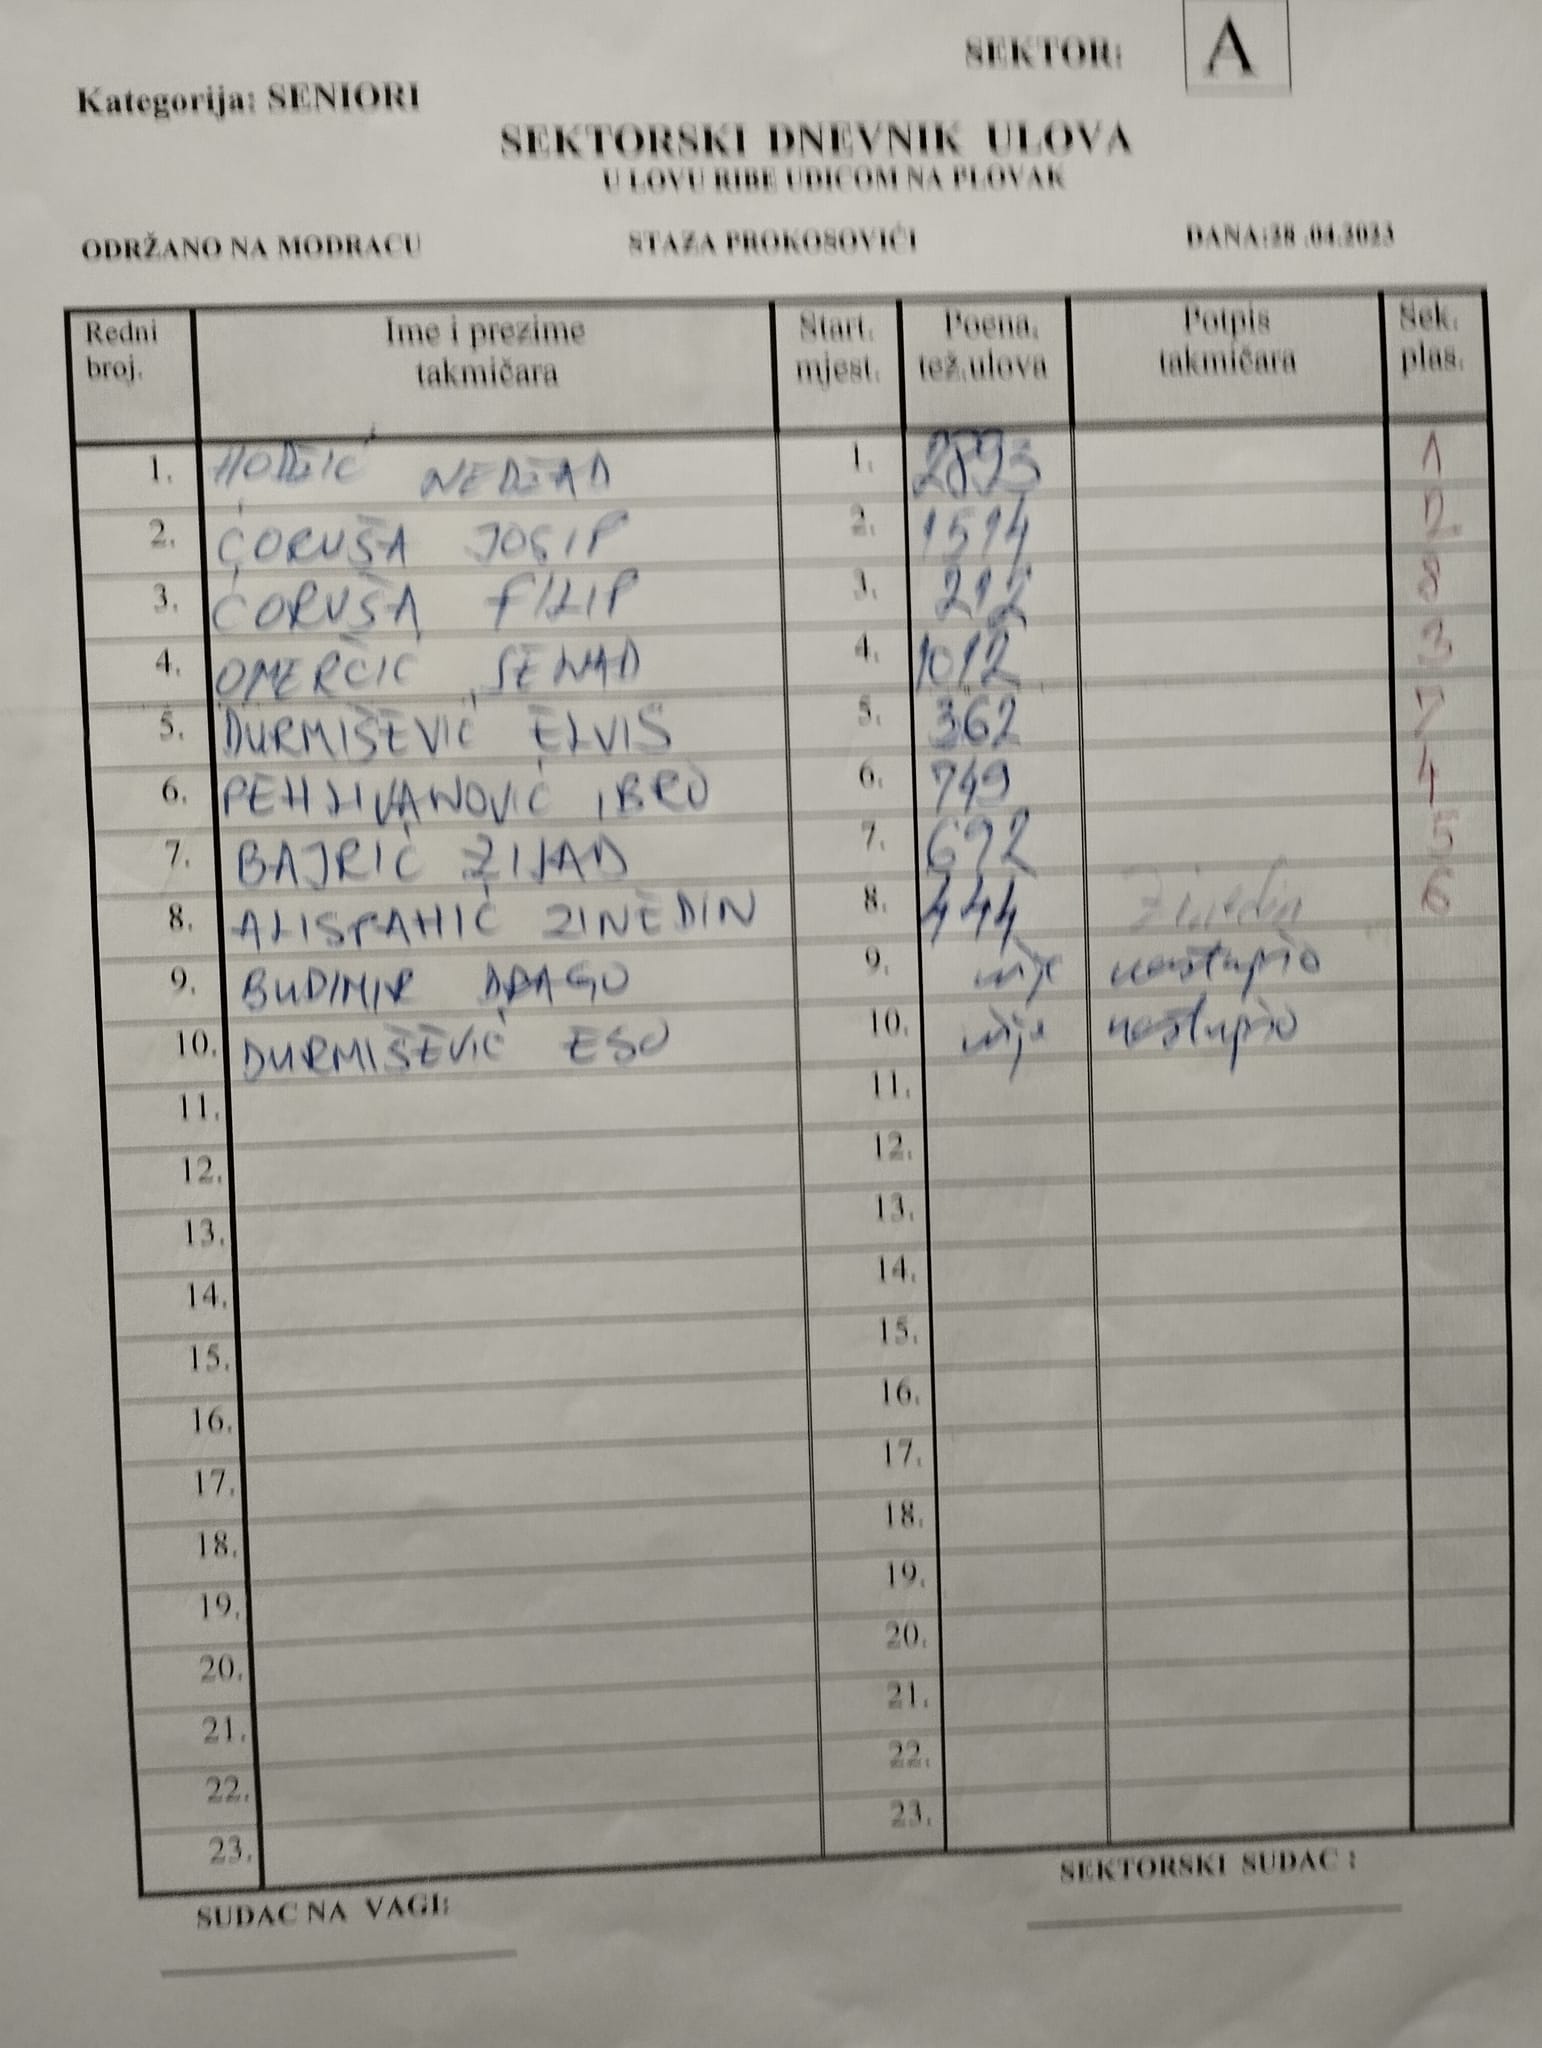 SEKTOR: A
Kategorija: SENIORI
SEKTORSKI DNEVNIK ULOVA
U LOVU RIBE UDICOM NA PLOVAK
ODRŽANO NA MODRACU STAZA PROKOSOVIĆI DANA:28 .04.2023
Redni broj. Ime i prezime takmičara Start. mjest. Poena. tež.ulova Potpis takmičara Sek. plas.
1. HODŽIĆ NEDŽAD 1. 2893 1
2. ĆORUŠA JOSIP 2. 1514 2
3. ĆORUŠA FILIP 3. 212 8
4. OMERČIĆ SENAD 4. 1012 3
5. DURMIŠEVIĆ ELVIS 5. 362 7
6. PEHLIVANOVIĆ IBRO 6. 749 4
7. BAJRIĆ ZIJAD 7. 692 5
8. ALISPAHIĆ ZINEDIN 8. 444 Zinedin 6
9. BUDIMIR DRAGO 9. nije nastupio
10. DURMIŠEVIĆ ESO 10. nije nastupio
11. 11.
12. 12.
13. 13.
14. 14.
15. 15.
16. 16.
17. 17.
18. 18.
19. 19.
20. 20.
21. 21.
22. 22.
23. 23.
SUDAC NA VAGI: SEKTORSKI SUDAC :